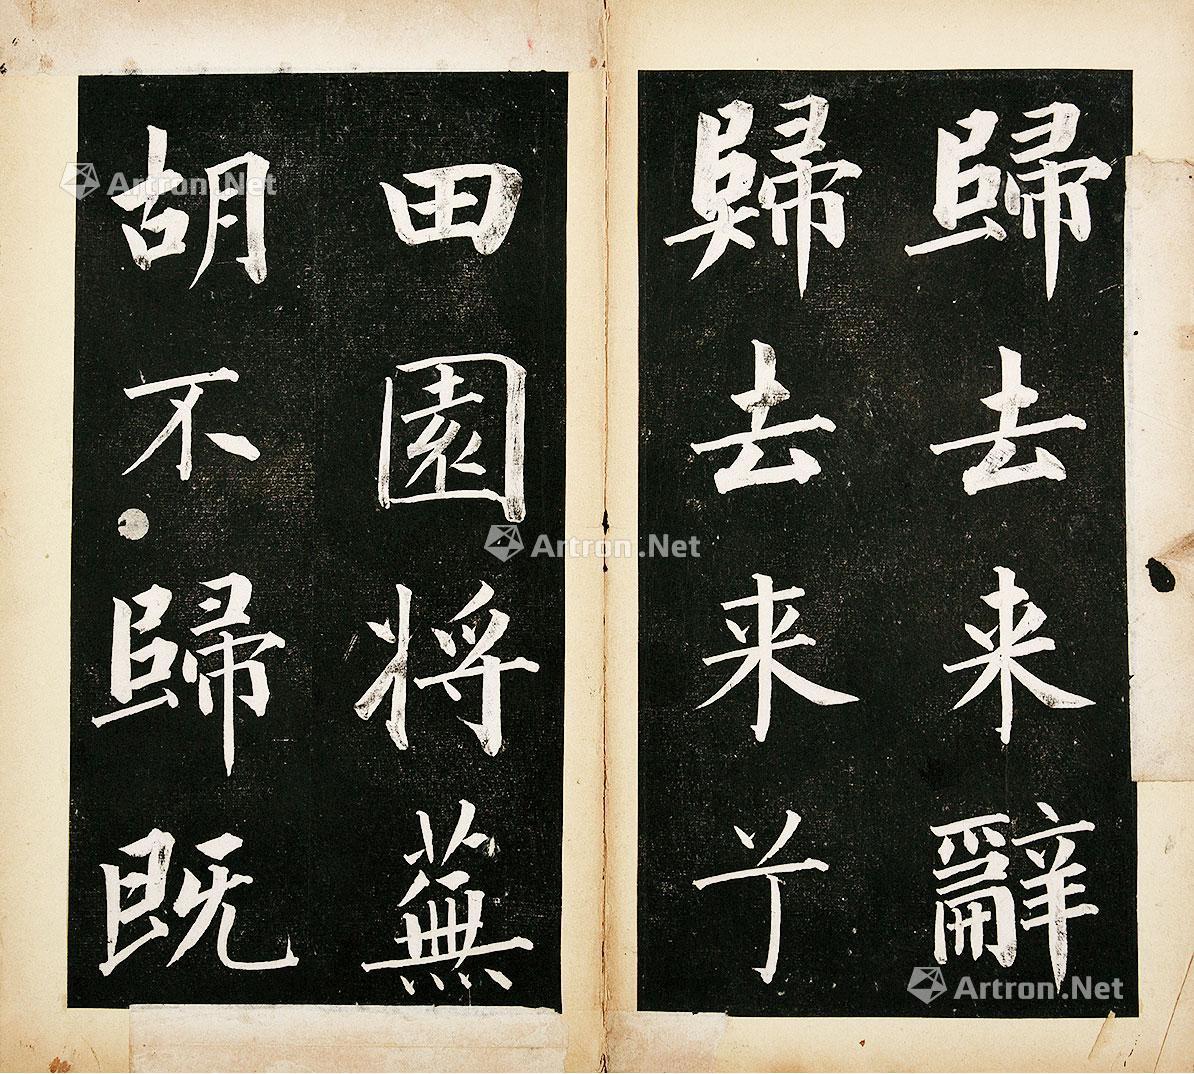 歸去来辭
歸去来兮
田園将蕪
胡不歸既
Artron.Net
Artron.Net
Artron.Net